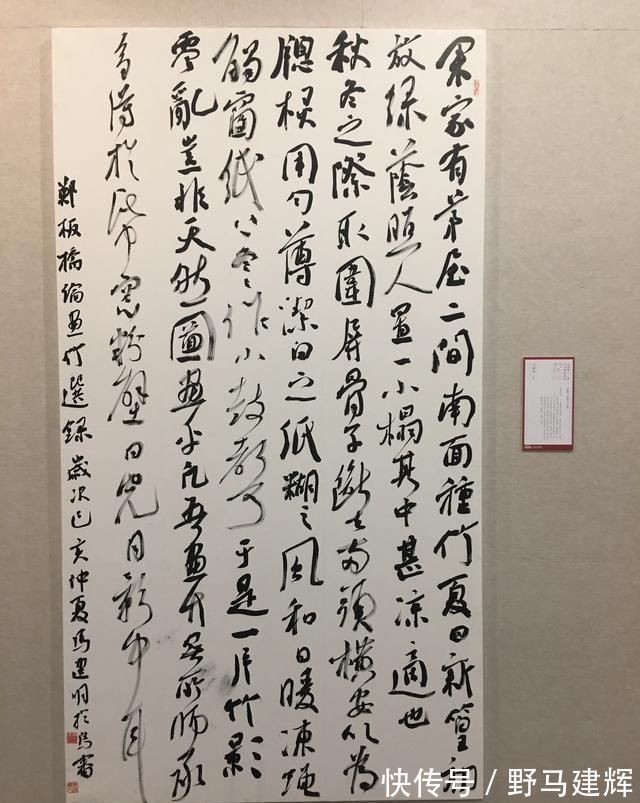 余家有茅屋二間南面種竹夏日新篁初
放綠蔭照人置一小榻其中甚凉適也
秋冬之際取圍屏骨子斷去兩頭橫安以為
窻櫺用勻薄潔白之紙糊之風和日暖凍蠅
觸窗紙上冬冬作小鼓聲于是一片竹影
零亂豈非天然圖畫乎凡吾畫竹無所師承
多得於紙窗粉壁日光月影中耳
鄭板橋論畫竹選錄歲次己亥仲夏馬建明於
快传号 / 野马建辉